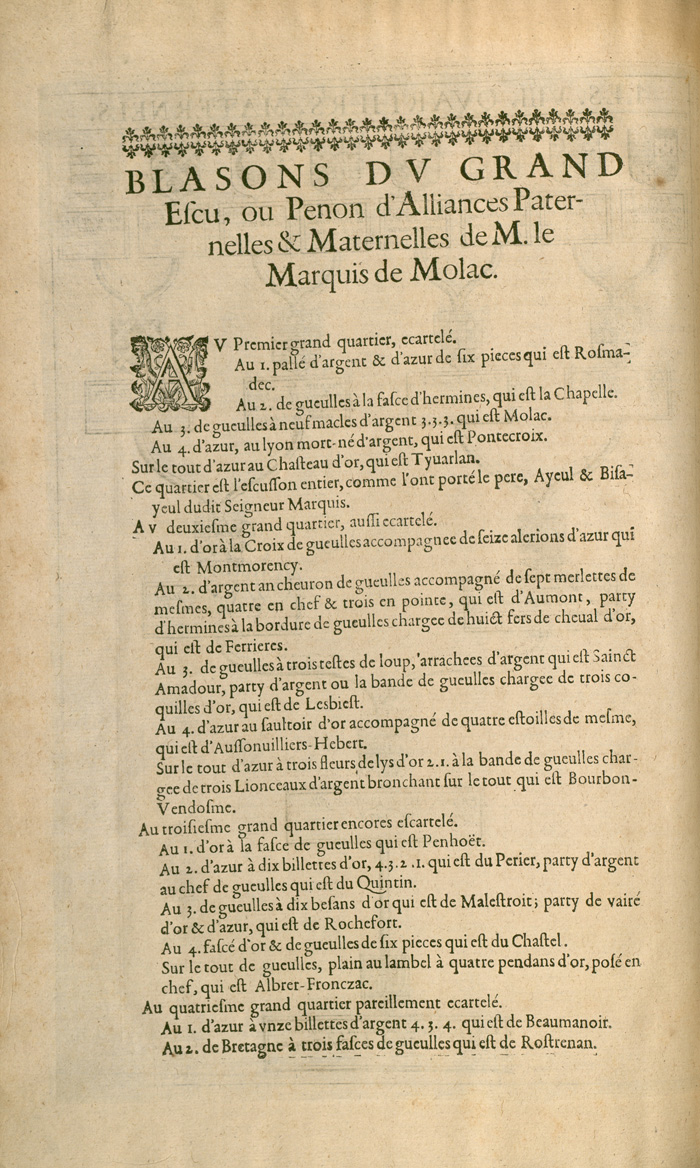 BLASONS DV GRAND
Eſcu, ou Penon d'Alliances Pater-
nelles & Maternelles de M. le
Marquis de Molac.
AV Premier grand quartier, ecartelé.
Au 1. pallé d'argent & d'azur de ſix pieces qui eſt Roſma-
dec.
Au 2. de gueulles à la faſce d'hermines, qui eſt la Chapelle.
Au 3. de gueulles à neuf macles d'argent 3.3.3. qui eſt Molac.
Au 4. d'azur, au lyon mort-né d'argent, qui eſt Pontecroix.
Sur le tout d'azur au Chaſteau d'or, qui eſt Tyuarlan.
Ce quartier eſt l'eſcuſſon entier, comme l'ont porté le pere, Ayeul & Biſa-
yeul dudit Seigneur Marquis.
Av deuxieſme grand quartier, auſſi ecartelé.
Au 1. d'or à la Croix de gueulles accompagnee de ſeize alerions d'azur qui
eſt Montmorency.
Au 2. d'argent an cheuron de gueulles accompagné de ſept merlettes de
meſmes, quatre en chef & trois en pointe, qui eſt d'Aumont, party
d'hermines à la bordure de gueulles chargee de huict fers de cheual d'or,
qui eſt de Ferrieres.
Au 3. de gueulles à trois teſtes de loup, arrachees d'argent qui eſt Sainct
Amadour, party d'argent ou la bande de gueulles chargee de trois co-
quilles d'or, qui eſt de Lesbieſt.
Au 4. d'azur au ſaultoir d'or accompagné de quatre eſtoilles de meſme,
qui eſt d'Auſſonuilliers-Hebert.
Sur le tout d'azur à trois fleurs de lys d'or 2.1. à la bande de gueulles char-
gee de trois Lionceaux d'argent bronchant ſur le tout qui eſt Bourbon-
Vendoſme.
Au troiſieſme grand quartier encores eſcartelé.
Au 1. d'or à la faſce de gueulles qui eſt Penhoët.
Au 2. d'azur à dix billettes d'or, 4.3.2.1. qui eſt du Perier, party d'argent
au chef de gueulles qui eſt du Quintin.
Au 3. de gueulles à dix beſans d'or qui eſt de Maleſtroit; party de vairé
d'or & d'azur, qui eſt de Rochefort.
Au 4. faſcé d'or & de gueulles de ſix pieces qui eſt du Chaſtel.
Sur le tout de gueulles, plain au lambel à quatre pendans d'or, poſé en
chef, qui eſt Albrer-Fronczac.
Au quatrieſme grand quartier pareillement ecartelé.
Au 1. d'azur à vnze billettes d'argent 4. 3. 4. qui eſt de Beaumanoir.
Au 2. de Bretagne à trois faſces de gueulles qui eſt de Roſtrenan.